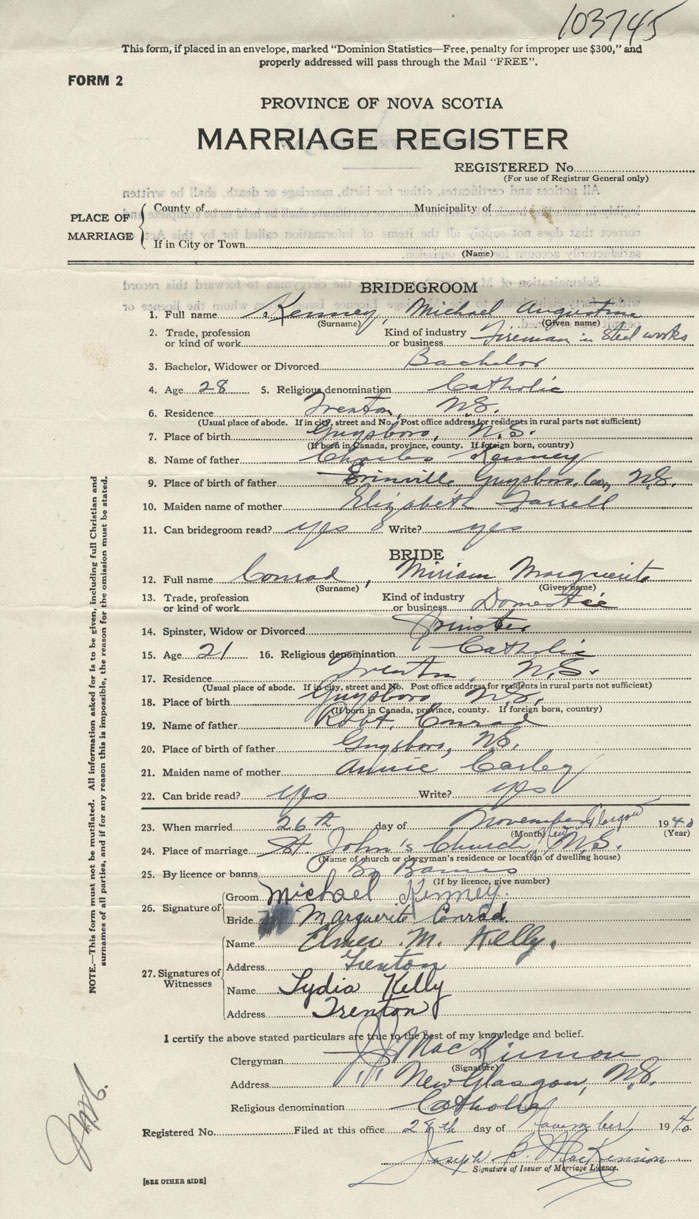 103745
This form, if placed in an envelope, marked "Dominion Statistics—Free, penalty for improper use $300," and
properly addressed will pass through the Mail "FREE".
FORM 2
PROVINCE OF NOVA SCOTIA
MARRIAGE REGISTER
REGISTERED No.
(For use of Registrar General only)
PLACE OF MARRIAGE
County of Municipality of
If in City or Town
(Name)
BRIDEGROOM
1. Full name Kenney, Michael Augustine
(Surname) (Given name)
2. Trade, profession or kind of work Kind of industry or business Fireman in Steel works
3. Bachelor, Widower or Divorced Bachelor
4. Age 28 5. Religious denomination Catholic
6. Residence Trenton, N.S.
(Usual place of abode. If in city, street and No. Post office address for residents in rural parts not sufficient)
7. Place of birth Guysboro, N.S.
(If born in Canada, province, county. If foreign born, country)
8. Name of father Charles Kenney
9. Place of birth of father Erinville Guysboro, Co., N.S.
10. Maiden name of mother Elizabeth Farrell
11. Can bridegroom read? yes Write? yes
BRIDE
12. Full name Conrad, Miriam Marguerite
(Surname) (Given name)
13. Trade, profession or kind of work Kind of industry or business Domestic
14. Spinster, Widow or Divorced Spinster
15. Age 21 16. Religious denomination Catholic
17. Residence Trenton, N.S.
(Usual place of abode. If in city, street and No. Post office address for residents in rural parts not sufficient)
18. Place of birth Guysboro N.S.
(If born in Canada, province, county. If foreign born, country)
19. Name of father Robt. Conrad
20. Place of birth of father Guysboro, N.S.
21. Maiden name of mother Annie
22. Can bride read? yes Write? yes
23. When married 26th day of November 1940
(Month) (Year)
24. Place of marriage St. John's Church, New Glasgow N.S.
(Name of church or clergyman's residence or location of dwelling house)
25. By licence or banns By Banns
(If by licence, give number)
26. Signature of
Groom Michael Kenney.
Bride Marguerite Conrad.
27. Signatures of Witnesses
Name Elmer M. Kelly.
Address Trenton
Name Lydia Kelly
Address Trenton
I certify the above stated particulars are true to the best of my knowledge and belief.
Clergyman MacKinnon
(Signature)
Address New Glasgow, N.S.
Religious denomination Catholic
Registered No. Filed at this office 28th day of November 1940
Joseph B. MacKinnon
Signature of Issuer of Marriage Licence.
[SEE OTHER SIDE]
NOTE.—This form must not be mutilated. All information asked for is to be given, including full Christian and
surnames of all parties, and if for any reason this is impossible, the reason for the omission must be stated.